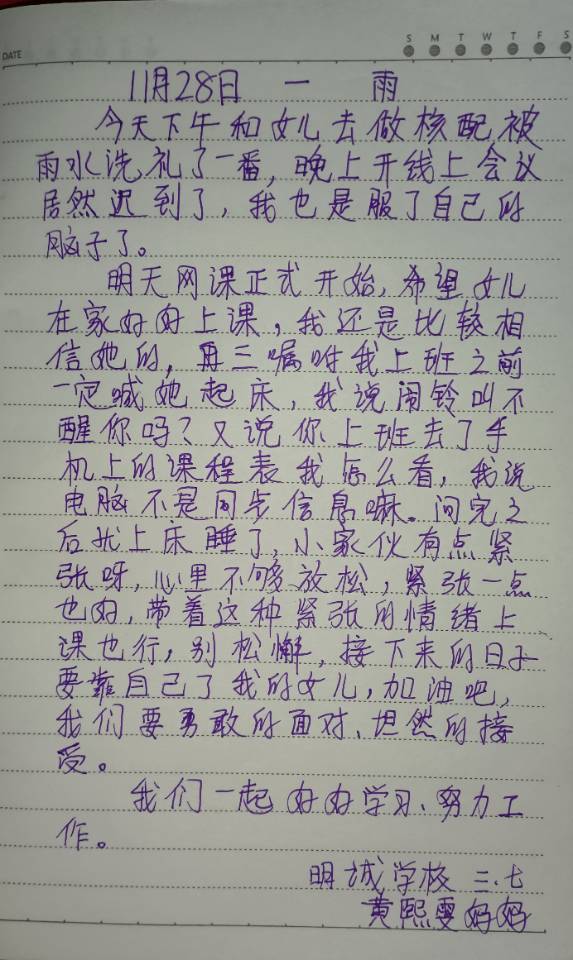 DATE
S M T W T F S
11月28日 一 雨
今天下午和女儿去做核酸,被
雨水洗礼了一番,晚上开线上会议
居然迟到了,我也是服了自己的
脑子了。
明天网课正式开始,希望女儿
在家好好上课,我还是比较相
信她的,再三嘱咐我上班之前
一定喊她起床,我说闹铃叫不
醒你吗?又说你上班去了手
机上的课程表我怎么看,我说
电脑不是同步信息嘛。问完之
后就上床睡了,小家伙有点紧
张呀,心里不够放松,紧张一点
也好,带着这种紧张的情绪上
课也行,别松懈,接下来的日子
要靠自己了我的女儿,加油吧,
我们要勇敢的面对、坦然的接
受。
我们一起好好学习、努力工
作。
明诚学校 三.七
黄熙雯妈妈